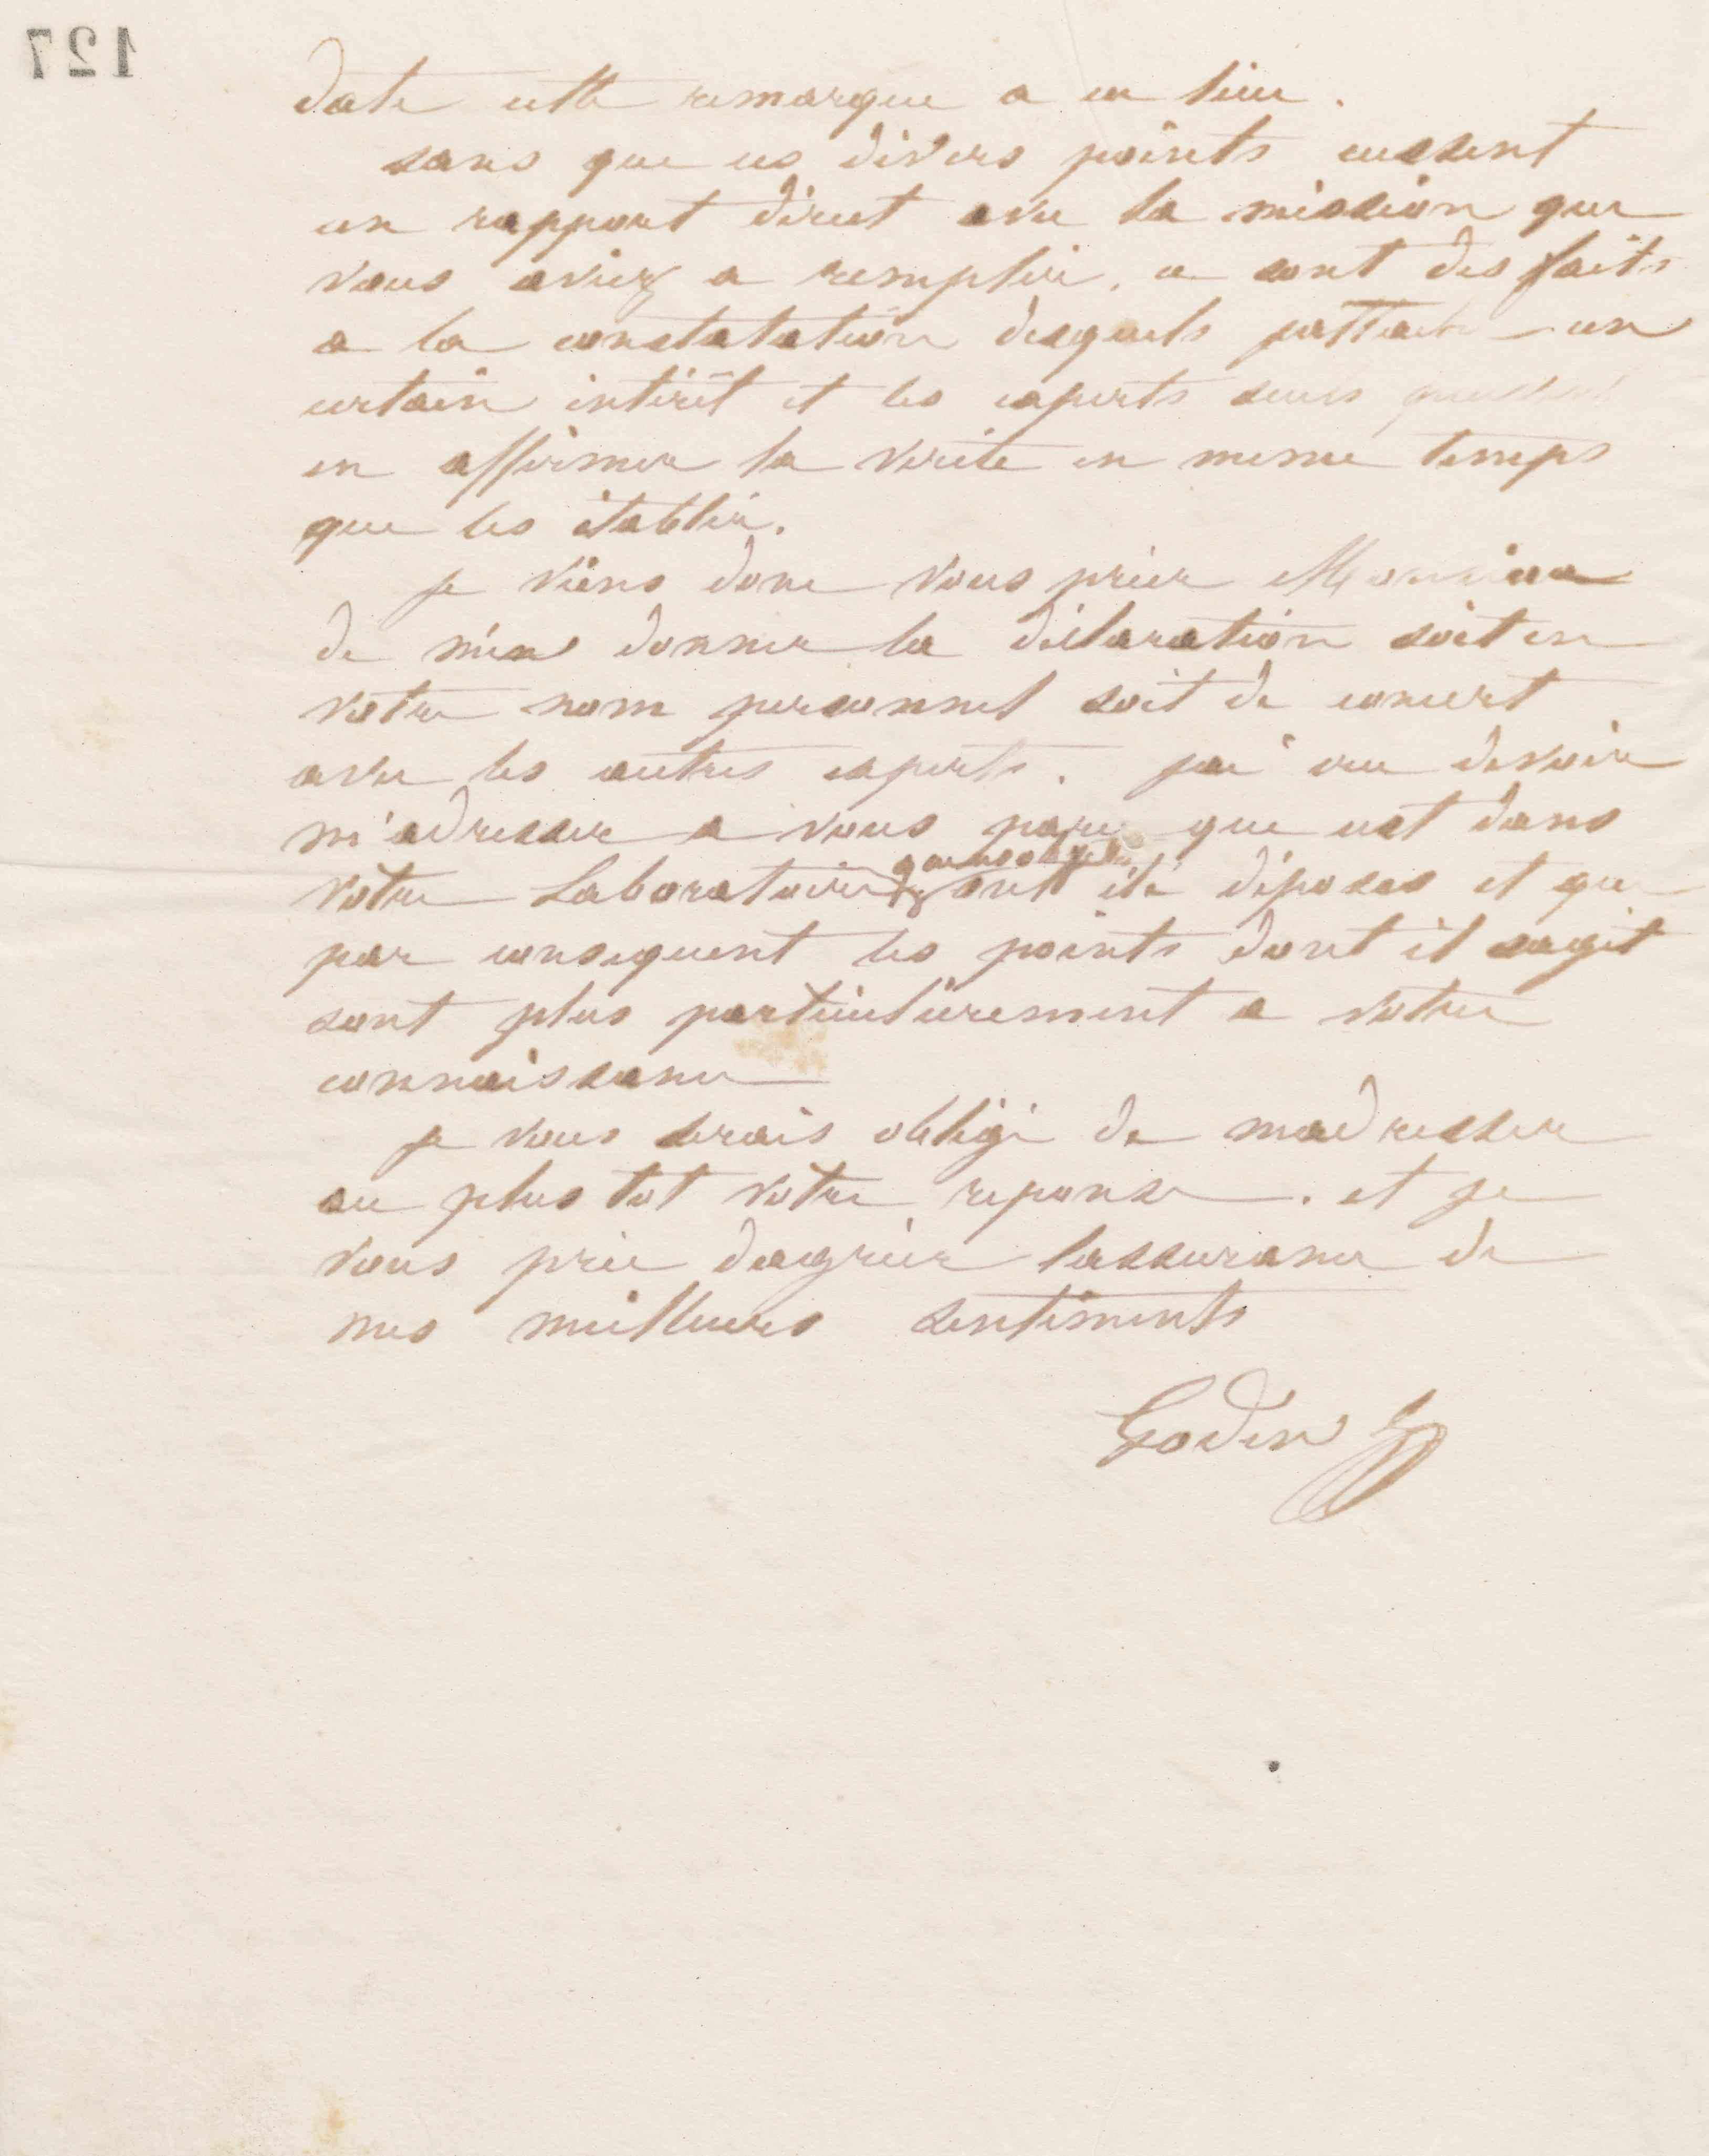 127
date cette remarque a eu lieu.
sans que ces divers points eussent
un rapport direct avec la mission que
vous aviez a remplir, ce sont des faits
a la constatation desquels jattache un
certain intérêt et les experts seuls peuvent
en affirmer la verite en meme temps
que les établir.
je viens donc vous prier Monsieur
de m'en donner la déclaration soit en
votre nom personnel soit de concert
avec les autres experts. jai cru devoir
m'adresser a vous parce que cest dans
votre Laboratoire que les objets ont été déposés et que
par consequent les points dont il sagit
sont plus particulièrement a votre
connaissance
je vous serais obligé de madresser
au plus tot votre reponse. et je
vous prie dagréer lassurance de
mes meilleurs sentiments
Godin